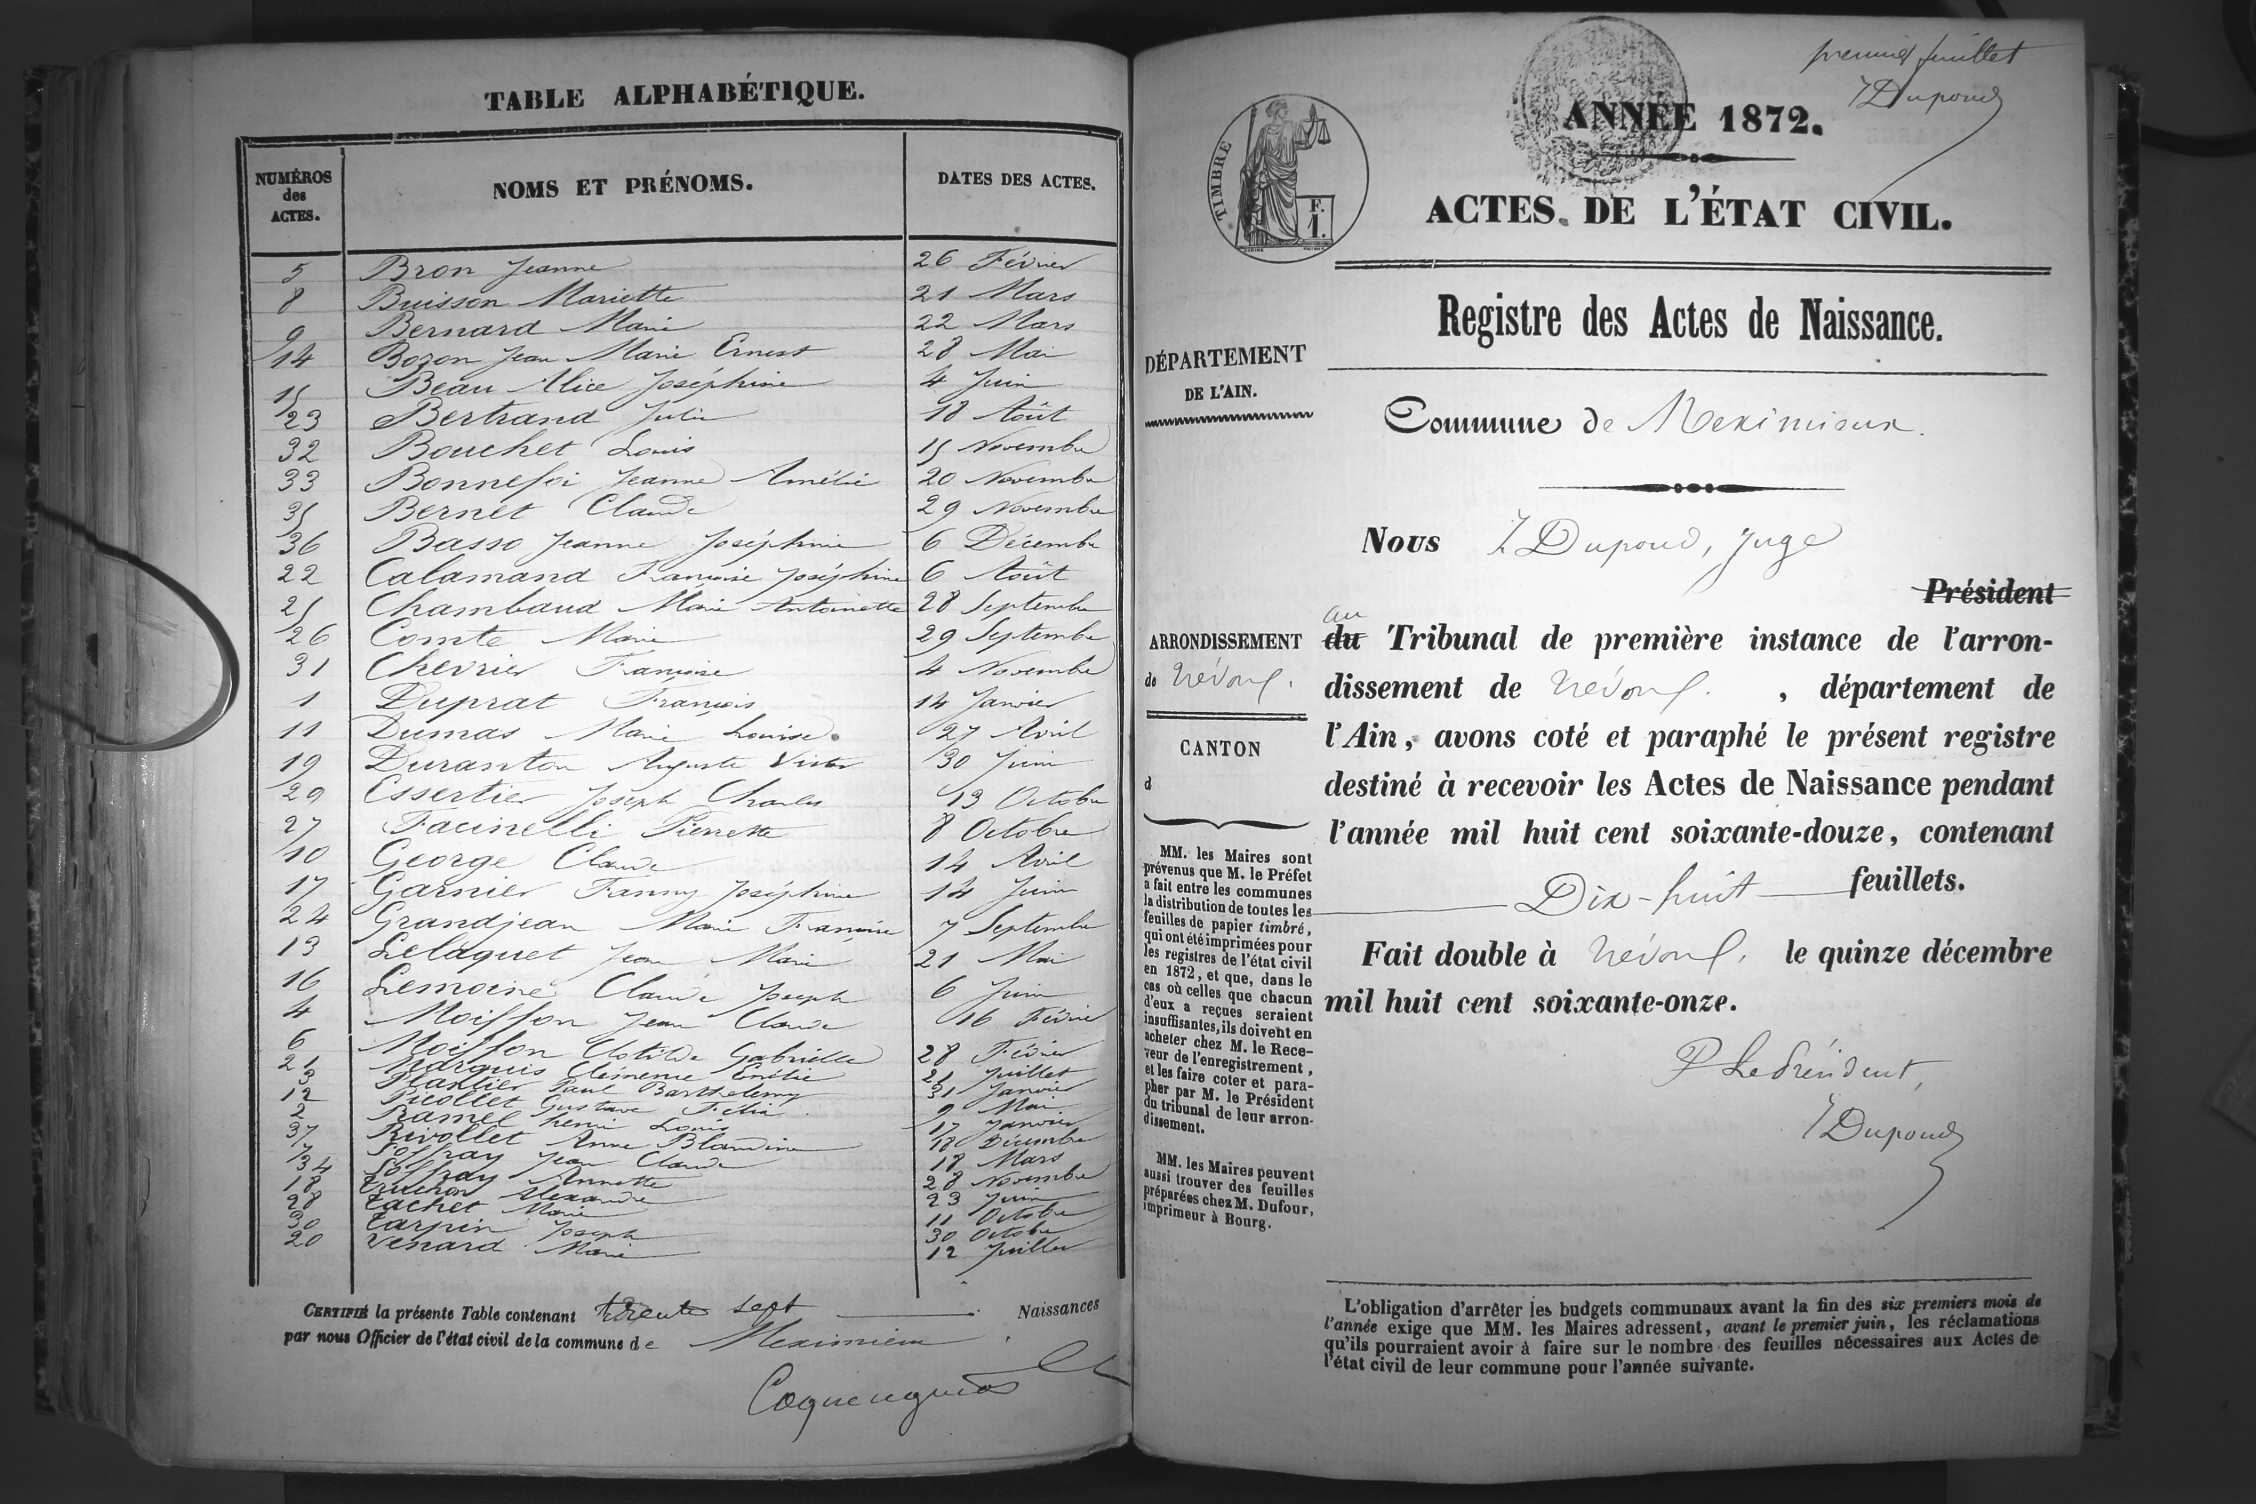 TABLE ALPHABÉTIQUE.
NUMÉROS des ACTES. NOMS ET PRÉNOMS. DATES DES ACTES.
5 Bron Jeanne 26 Février
8 Buisson Mariette 21 Mars
9 Bernard Marie 22 Mars
14 Bozon Jean Marie Ernest 28 Mai
15 Beau Alice Joséphine 4 Juin
23 Bertrand Julie 18 Août
32 Bouchet Louis 15 Novembre
33 Bonnefoi Jeanne Amélie 20 Novembre
35 Bernet Claude 29 Novembre
36 Basso Jeanne Joséphine 6 Décembre
22 Calamand Françoise Joséphine 6 Août
25 Chambaud Marie Antoinette 28 Septembre
26 Comte Marie 29 Septembre
31 Chevrier Françoise 4 Novembre
1 Duprat François 14 Janvier
11 Dumas Marie Louise. 27 Avril
19 Duranton Auguste Victor 30 Juin
29 Essertier Joseph Charles 13 Octobre
27 Facinelli Pierrette 8 Octobre
10 George Claude 14 Avril
17 Garnier Fanny Joséphine 14 Juin
24 Grandjean Marie Françoise 7 Septembre
13 Lelaquet Jean Marie 21 Mai
16 Lemoine Claude Joseph 6 Juin
4 Moiffon Jean Claude 16 Février
6 Moiffon Clotilde Gabrielle 28 Février
21 Marquis Clémence Emélie 21 Juillet
3 Plantier Paul Barthelemy 31 Janvier
12 Picollet Gustave Felix 9 Mai
2 Ramel henri Louis 17 Janvier
37 Rivollet Anne Blandine 18 Décembre
7 Soffray Jean Claude 18 Mars
34 Soffray Annette 28 Novembre
18 Truchon Alexandre 23 Juin
28 Tachet Marie 11 Octobre
30 Tarpin Joseph 30 Octobre
20 Venard Marie 12 Juillet
CERTIFIÉ la présente Table contenant trente sept Naissances
par nous Officier de l'état civil de la commune de Meximieux
premier feuillet
Dupoud
ANNÉE 1872.
TIMBRE
F.
1.
ACTES DE L'ÉTAT CIVIL.
Registre des Actes de Naissance.
DÉPARTEMENT
DE L'AIN.
Commune de Meximieux.
Nous Dupoud, Juge
Président
au
ARRONDISSEMENT
de Trévoux.
CANTON
d
du Tribunal de première instance de l'arron-
dissement de Trévoux. , département de
l'Ain, avons coté et paraphé le présent registre
destiné à recevoir les Actes de Naissance pendant
l'année mil huit cent soixante-douze, contenant
Dix-huit feuillets.
Fait double à Trévoux, le quinze décembre
mil huit cent soixante-onze.
P Le Président,
Dupoud
MM. les Maires sont
prévenus que M. le Préfet
a fait entre les communes
la distribution de toutes les
feuilles de papier timbré,
qui ont été imprimées pour
les registres de l'état civil
en 1872, et que, dans le
cas où celles que chacun
d'eux a reçues seraient
insuffisantes, ils doivent en
acheter chez M. le Rece-
veur de l'enregistrement,
et les faire coter et para-
pher par M. le Président
du tribunal de leur arron-
dissement.
MM. les Maires peuvent
aussi trouver des feuilles
préparées chez M. Dufour,
imprimeur à Bourg.
L'obligation d'arrêter les budgets communaux avant la fin des six premiers mois de
l'année exige que MM. les Maires adressent, avant le premier juin, les réclamations
qu'ils pourraient avoir à faire sur le nombre des feuilles nécessaires aux Actes de
l'état civil de leur commune pour l'année suivante.